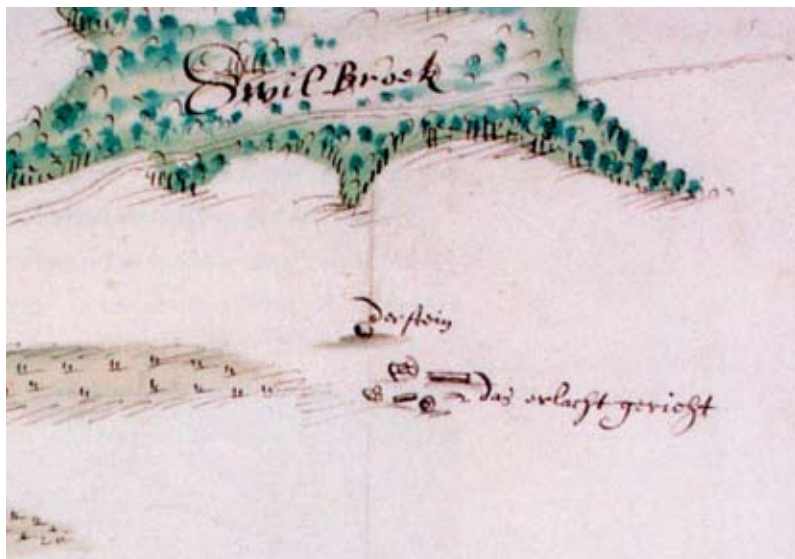 Swilbroek
der stein
das erlacht gericht